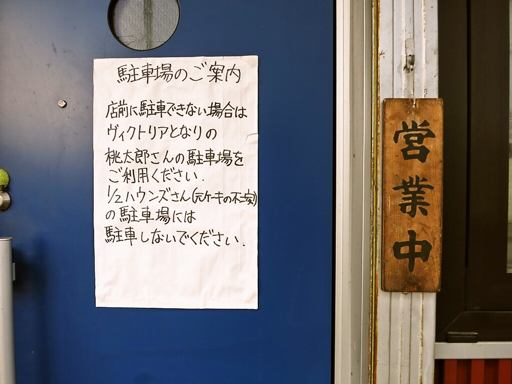 駐車場のご案内
店前に駐車できない場合は
ヴィクトリアとなりの
桃太郎さんの駐車場を
ご利用ください.
1/2ハウンズさん(元ケーキの不二家)
の駐車場には
駐車しないでください.
営業中